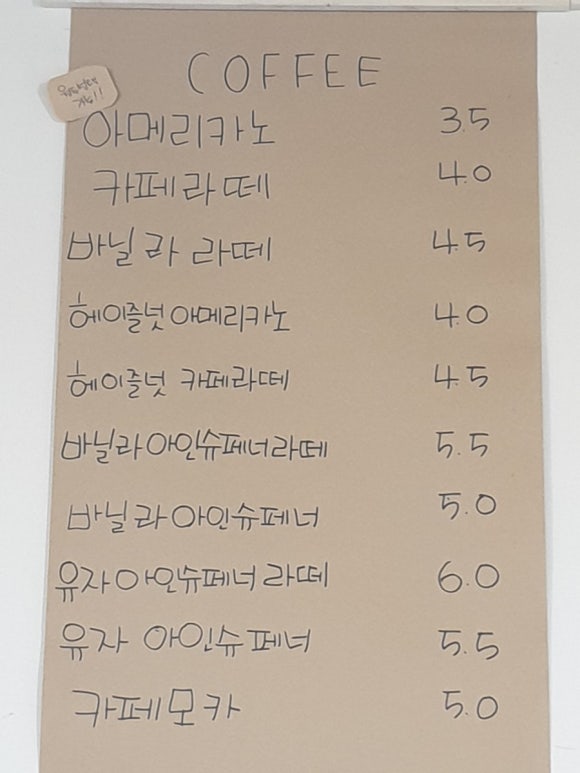 COFFEE
아메리카노 3.5
카페라떼 4.0
바닐라 라떼 4.5
헤이즐넛아메리카노 4.0
헤이즐넛 카페라떼 4.5
바닐라아인슈페너라떼 5.5
바닐라아인슈페너 5.0
유자아인슈페너라떼 6.0
유자 아인슈페너 5.5
카페모카 5.0